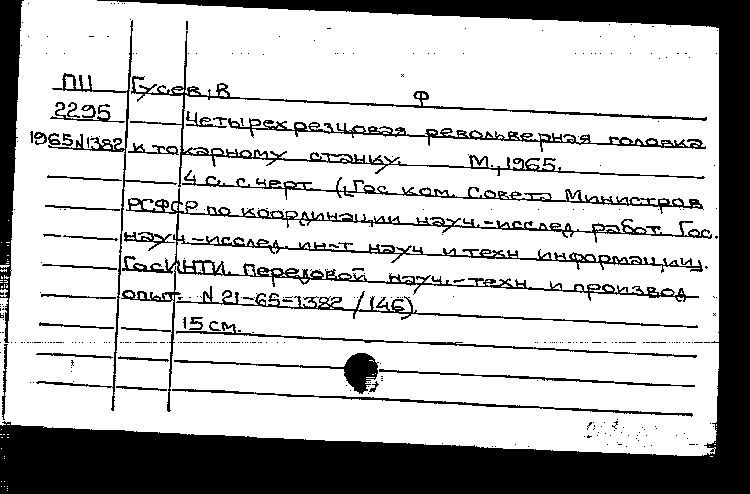 П11 Гусев, В Ф
2295 Четырехрезцовая револьверная головка
1965 N1382 к токарному станку. М., 1965.
4 с. с черт (Гос ком. Совета Министров
РСФСР по координации науч.-исслед. работ. Гос.
науч.-исслед. инст науч и техн информации.
ГосИНТИ. Передовой науч.-техн. и производ
опыт. N 21-65-1382 / 146).
15 см.